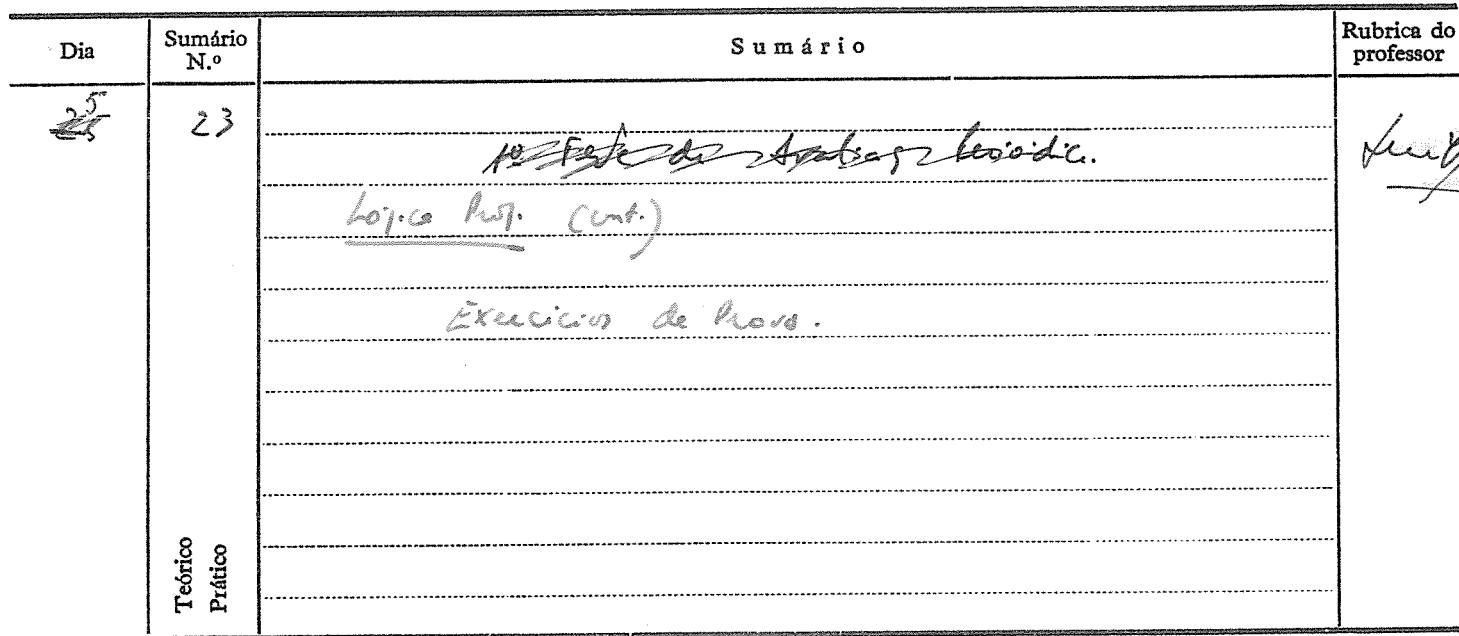 Dia
Sumário N.º
Sumário
Rubrica do professor
5
23
1º Teste de Avaliação Periódica.
Lógica Prop. (cont.)
Exercícios de Prova.
Teórico
Prático